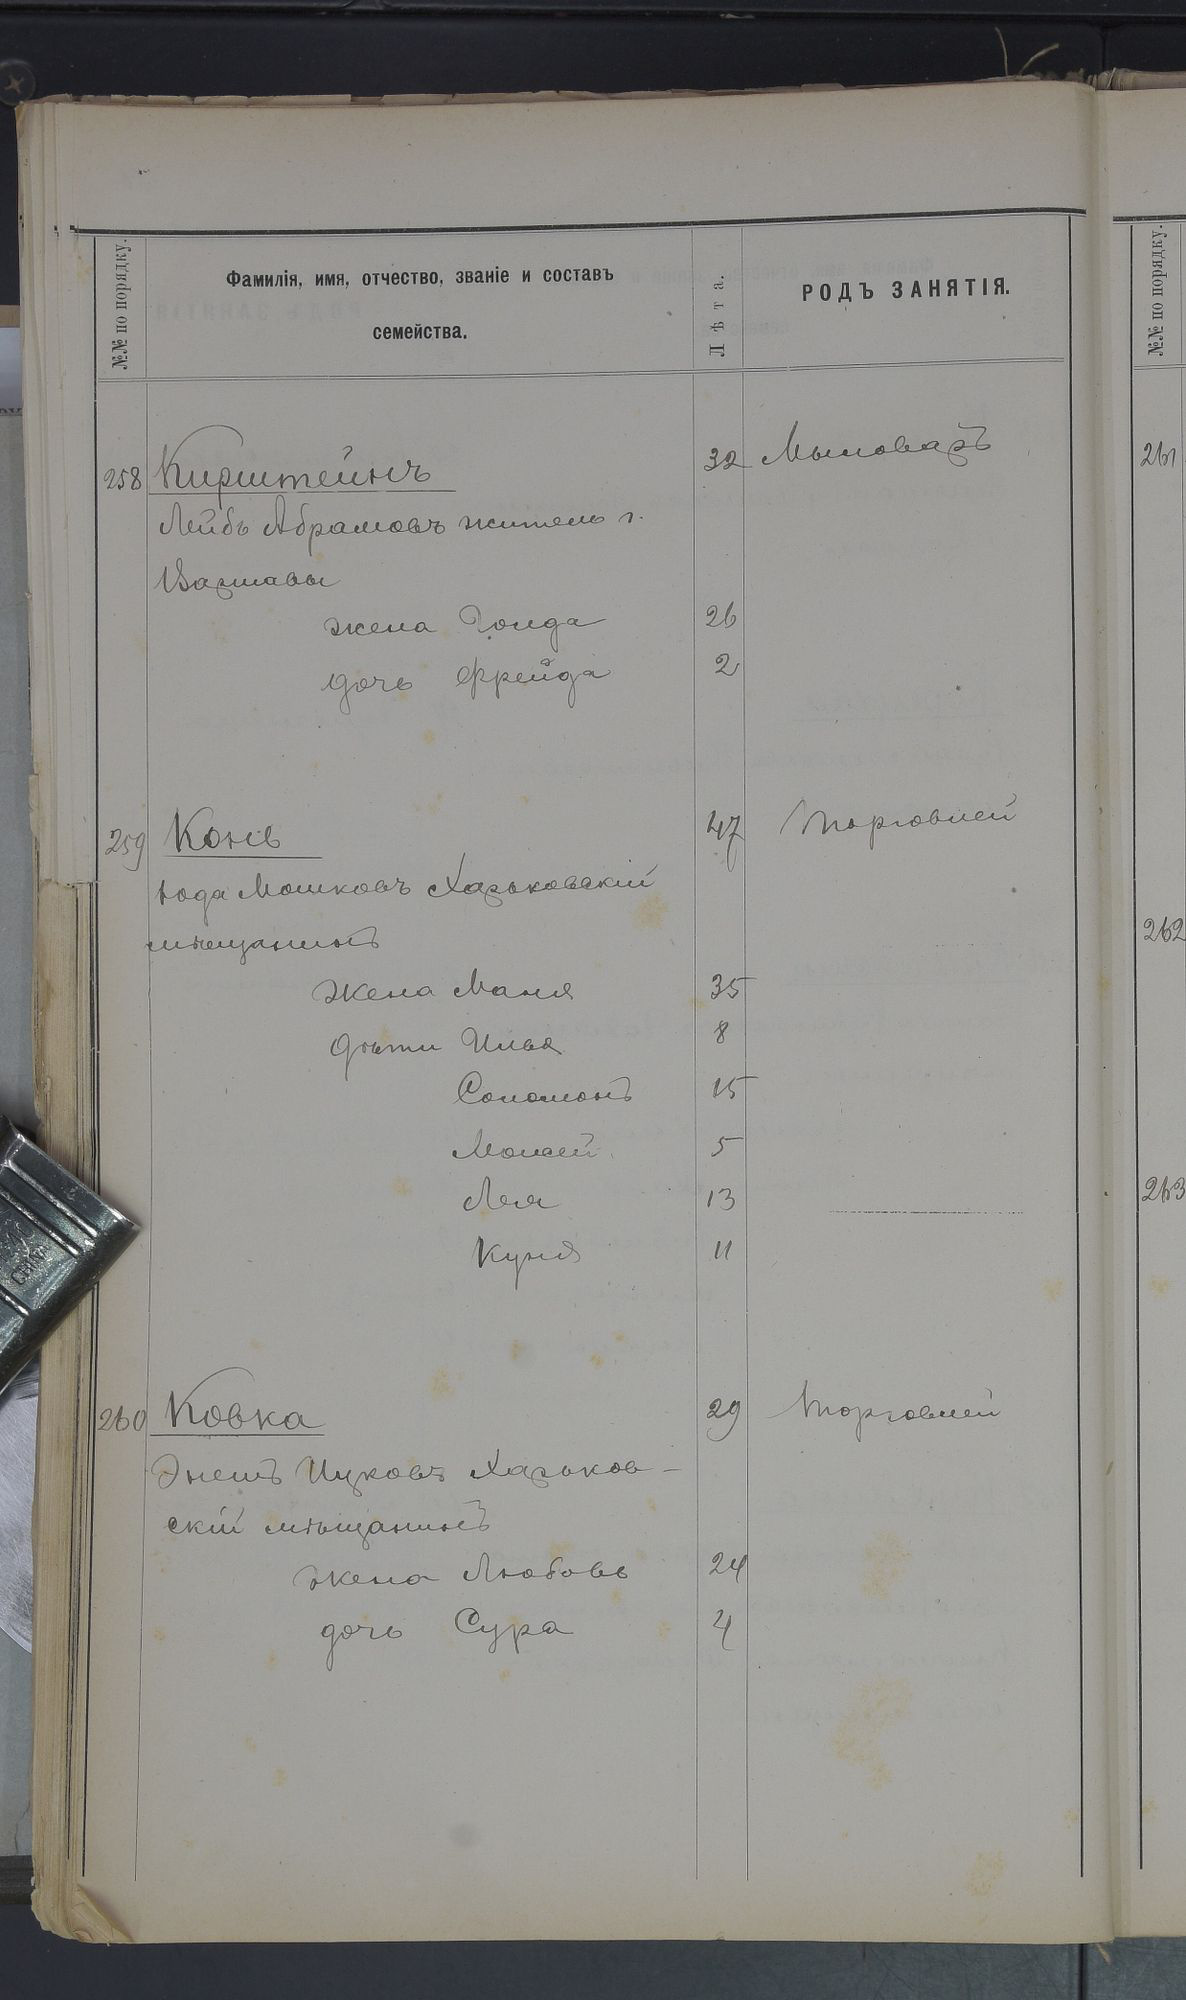 №№ по порядку.
Фамилія, имя, отчество, званіе и составъ
семейства.
Лѣта.
РОДЪ ЗАНЯТІЯ.
№№ по порядку.
258 Кирштейнъ 32 Мыловаръ
Лейбъ Абрамовъ житель г.
Варшавы
жена Голда 26
дочь Фрейда 2
259 Конъ 47 Торговлей
Іода Мошковъ Харьковскій
мѣщанинъ
Жена Маня 35
дѣти Илья 8
Соломонъ 15
Моисей 5
Лея 13
Куня 11
260 Ковка 29 Торговлей
Ицковъ Харьков-
скій мѣщанинъ
жена Любовь 24
дочь Сура 4
261
262
263